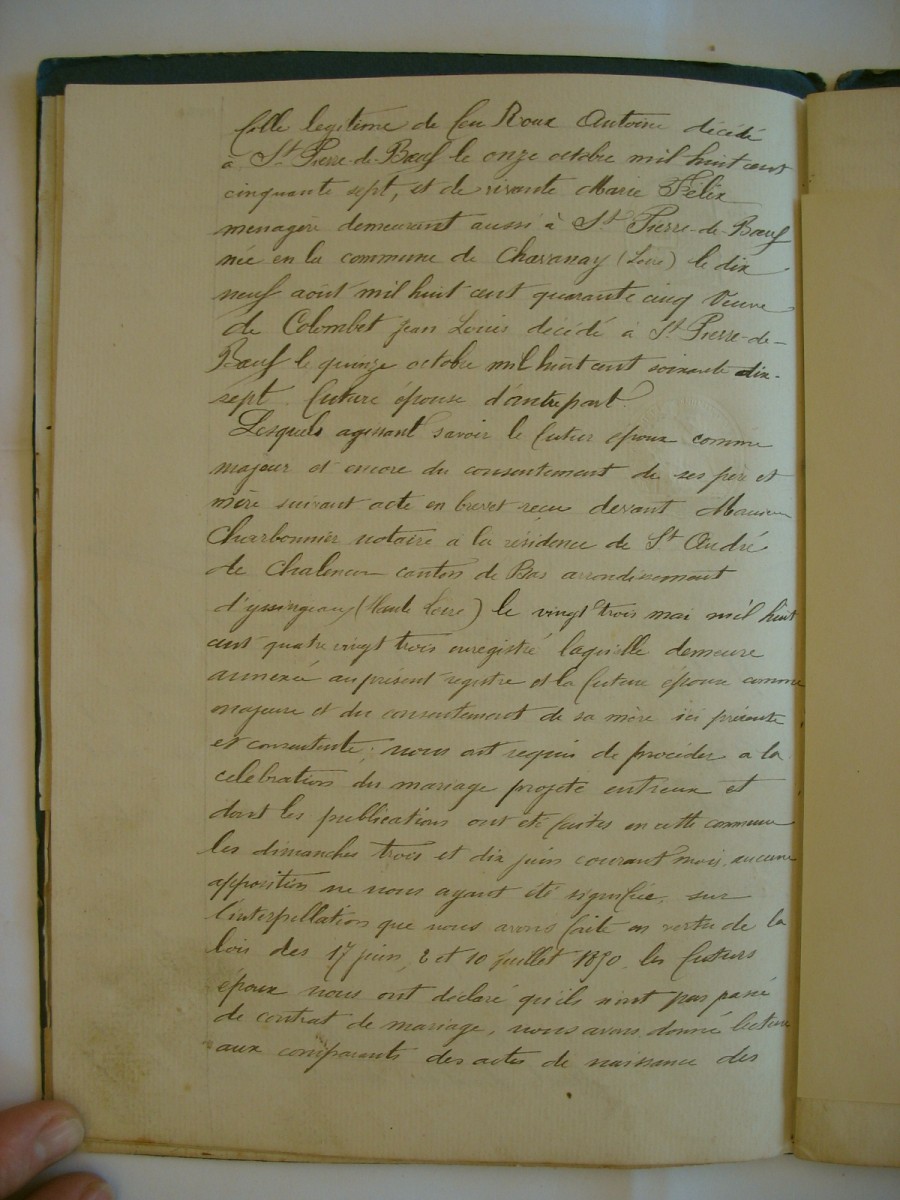 fille legitime de feu Roux Antoine décédé
à St Pierre-de-Bœuf le onze octobre mil huit cent
cinquante sept, et de vivante Marie Félix
menagère demeurant aussi à St Pierre-de-Bœuf
née en la commune de Chavanay (Loire) le dix
neuf août mil huit cent quarante cinq Veuve
de Colombet jean Louis décédé à St Pierre-de-
Bœuf le quinze octobre mil huit cent soixante dix-
sept future épouse d'autre part.
Lesquels agissant savoir le futur époux comme
majeur et encore du consentement de ses père et
mère suivant acte en brevet recu devant Monsieur
Charbonnier notaire à la résidence de St André
de Chalencon canton de Bas arrondissement
d'yssingeaux (Haute Loire) le vingt trois mai mil huit
cent quatre vingt trois enregistré laquelle demeure
annexée au présent registre et la future épouse comme
majeure et du consentement de sa mère ici présente
et consentente; nous ont requis de procéder à la
celebration du mariage projeté entreux et
dont les publications ont été faites en cette commune
les dimanches trois et dix juin courant mois, aucune
opposition ne nous ayant été signifiée, sur
l'interpellation que nous avons faite en vertu de la
loi des 17 juin, 2 et 10 juillet 1850, les futurs
époux nous ont déclaré qu'ils n'ont pas passé
de contrat de mariage, nous avons donné lecture
aux comparants des actes de naissance des